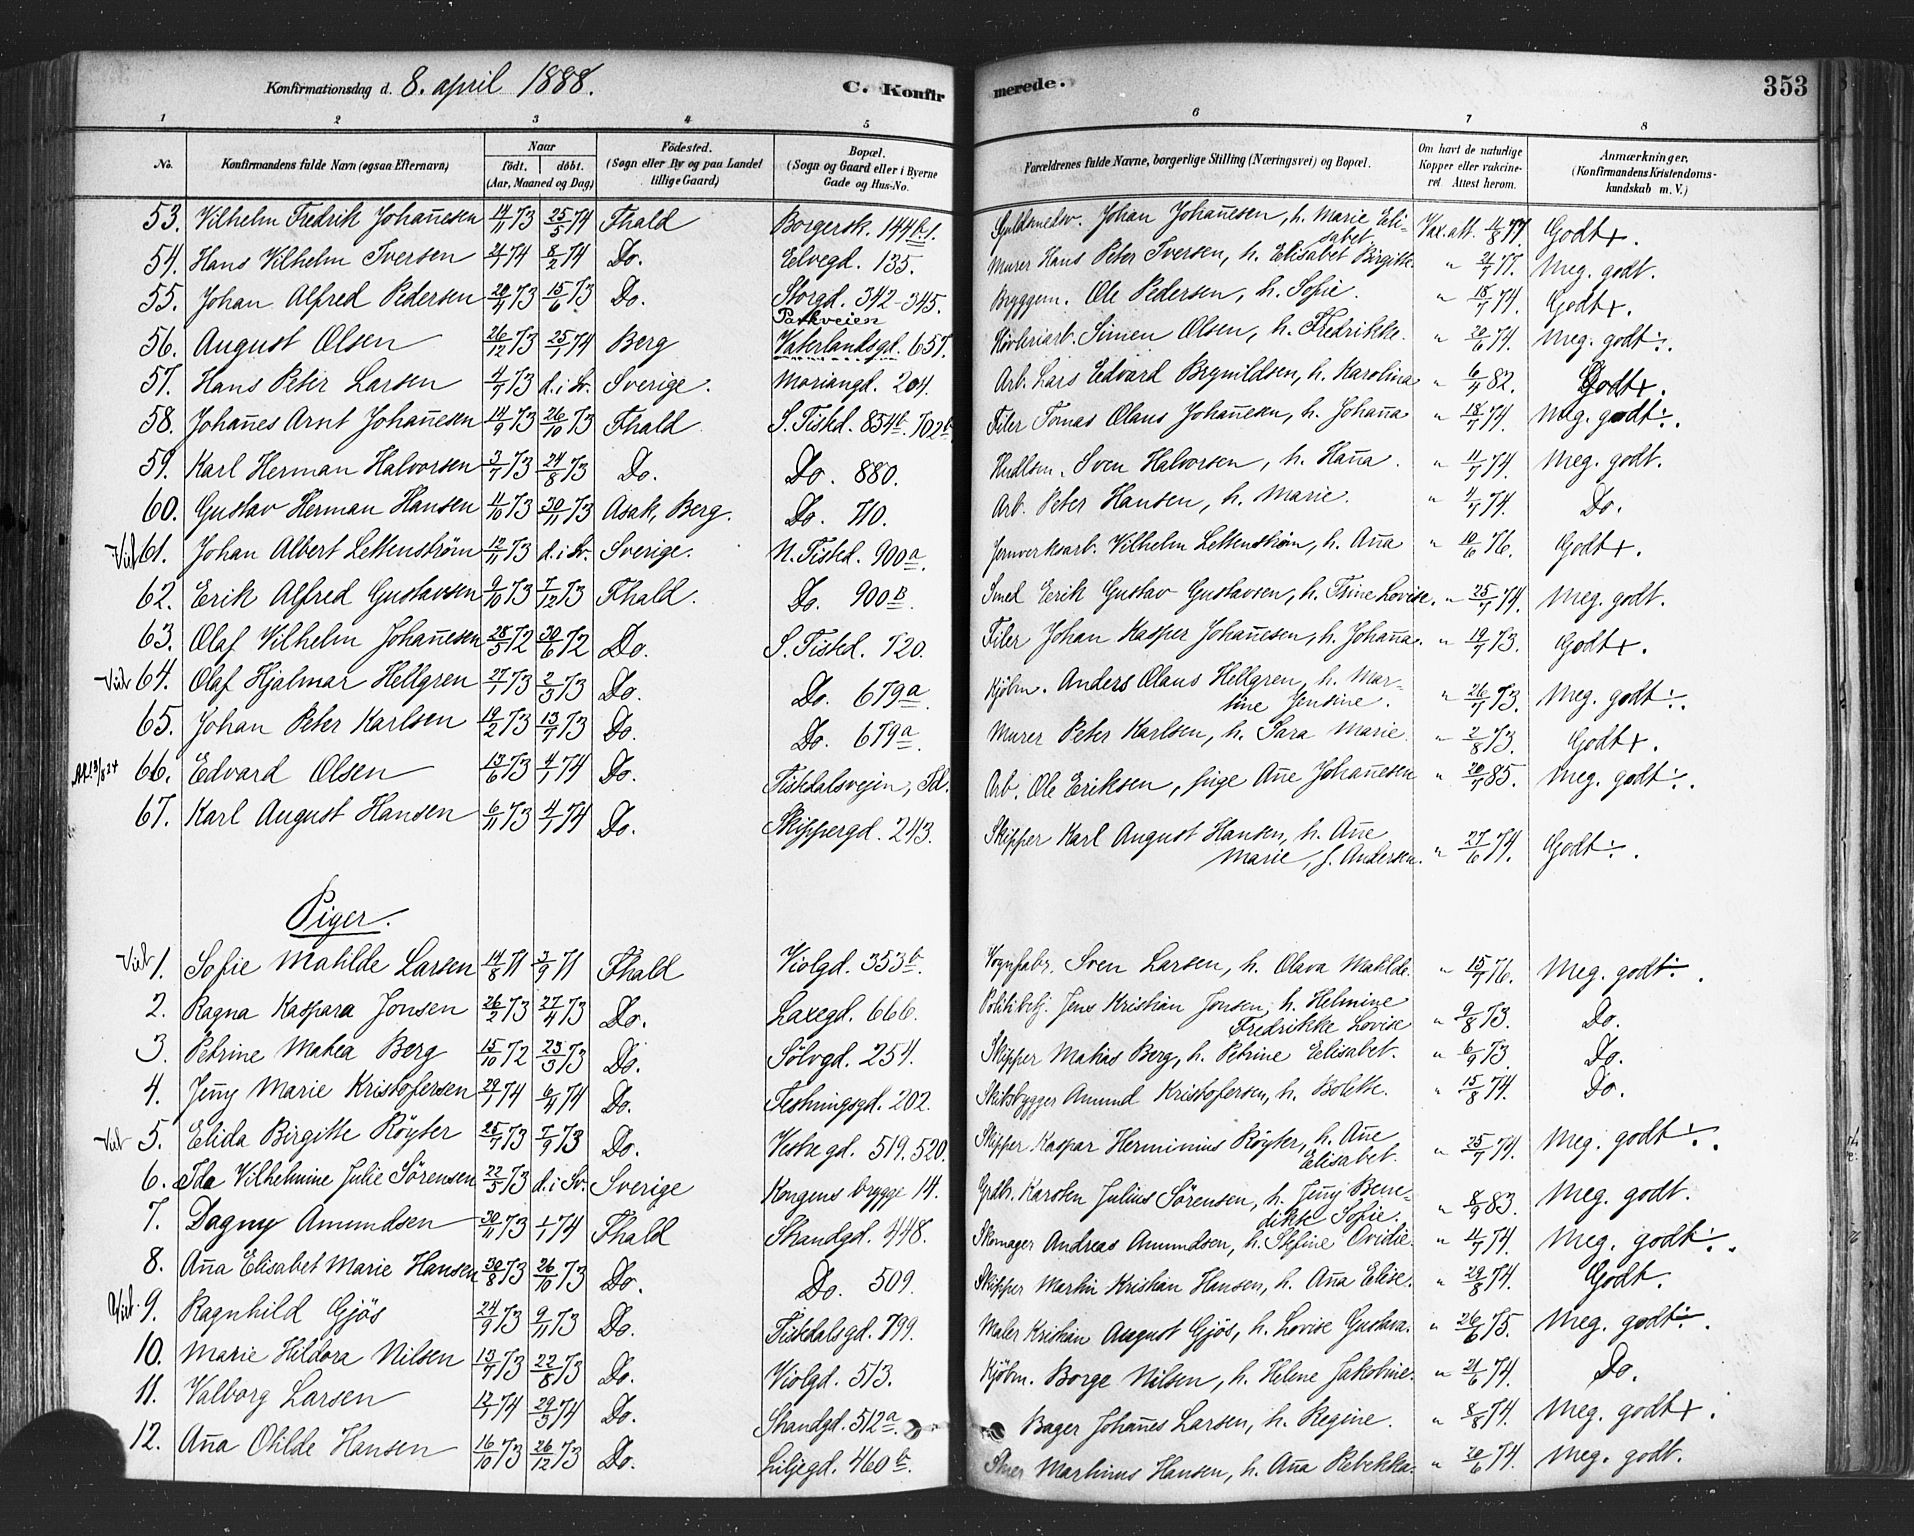 Konfirmationsdag d. 8. april 1888. C. Konfirmerede. 353
1 2 3 4 5 6 7 8
No. Konfirmandens fulde Navn (ogsaa Efternavn) Naar födt. döbt. (Aar, Maaned og Dag) Födested. (Sogn eller By og paa Landet tillige Gaard) Bopæl. (Sogn og Gaard eller i Byerne Gade og Hus-No. Forældrenes fulde Navne, borgerlige Stilling (Næringsvei) og Bopæl. Om havt de naturlige Kopper eller vakcineret. Attest herom. Anmærkninger. (Konfirmandens Kristendomskundskab m. V.)
53. Vilhelm Fredrik Johan̄esen 14/11 73 25/5 74 Fhald Borgersk. 144 b.1. Guldsmedsv. Johan Johan̄esen, h. Marie Elisabet. Vax. att. 11/8 77 Godt+.
54. Hans Vilhelm Iversen 2/1 74 8/2 74 Do. Elvegd. 135. Murer Hans Peter Iversen, h. Elisabet Birgitte. " 21/7 77. Meg. godt.
55. Johan Alfred Pedersen 20/4 73 15/6 73 Do. Storgd. 342-345. Bryggem. Ole Pedersen, h. Sofie. " 18/7 74. Godt+.
Parkveien
56. August Olsen 26/12 73 25/1 74 Berg Vaterlandsgd. 657. Høvleriarb. Simen Olsen, h. Fredrikke. " 20/6 74. Meg. godt÷.
57. Hans Peter Larsen 4/7 73 d. i Sv. Sverige. Mariangd. 204. Arb. Lars Edvard Brynildsen, h. Karolina " 6/4 82. Godt+.
58. Johan̄es Arnt Johan̄esen 14/9 73 26/10 73 Fhald S. Tistd. 854 b. 702 b Filer Tomas Olaus Johan̄esen, h. Johan̄a " 18/7 74. Meg. godt÷.
59. Karl Herman Halvorsen 3/7 73 24/8 73 Do. Do. 880. Hndlsm. Sven Halvorsen, h. Han̄a. " 11/7 74. Meg. godt.
60. Gustav Herman Hansen 11/10 73 30/11 73 Asak, Berg. Do. 710. Arb. Peter Hansen, h. Marie. " 4/7 74. Do.
61. Johan Albert Lettenström 12/11 73 d. i Sv. Sverige. N. Tistd. 900 a. Jernverksarb. Vilhelm Lettenström, h. An̄a " 10/6 76. Godt+.
62. Erik Alfred Gustavsen 9/10 73 7/12 73 Fhald. Do. 900 B. Smed Erik Gustav Gustavsen, h. Tsine Lovise. " 25/7 74. Meg. godt.
63. Olaf Vilhelm Johan̄esen 28/5 72 30/6 72 Do. S. Tistd. 720. Filer Johan Kasper Johan̄esen, h. Johan̄a. " 19/7 73. Godt+.
64. Olaf Hjalmar Hellgren 27/1 73 2/3 73 Do. Do. 679 a. Kjöbm. Anders Olaus Hellgren, h. Martine Jensine. " 26/7 73. Meg. godt÷.
65. Johan Peter Karlsen 19/2 73 13/7 73 Do. Do. 679 a. Murer Peter Karlsen, h. Sara Marie. " 2/8 73. Godt+.
66. Edvard Olsen 13/6 73 4/1 74 Do. Tistdalsvejen, Td. Arb. Ole Eriksen, pige An̄e Johan̄esen " 20/7 85. Meg. godt÷.
67. Karl August Hansen 6/11 73 4/1 74 Do. Skippergd. 243. Skipper Karl August Hansen, h. An̄e Marie, f. Andersen. " 27/6 74. Godt÷.
Piger.
1. Sofie Matilde Larsen 14/8 71 3/9 71 Fhald Violgd. 353 b. Vognfabr. Sven Larsen, h. Olava Matilde. " 15/7 76. Meg. godt÷.
2. Ragna Kaspara Jonsen 26/2 73 27/4 73 Do. Laxegd. 666. Politibetj. Jens Kristian Jonsen, h. Helmine Fredrikke Lovise " 9/8 73. Do.
3. Petrine Matea Berg 15/10 72 23/3 73 Do. Sölvgd. 254. Skipper Matias Berg, h. Petrine Elisabet. " 6/9 73 Do.
4. Jen̄y Marie Kristofersen 29/1 74 6/4 74 Do. Festningsgd. 202. Skibsbygger Amund Kristofersen, h. Bolette. " 15/8 74. Do.
5. Elida Birgitte Röyter 25/7 73 7/9 73 Do. Vestregd. 519. 520. Skipper Kaspar Herminius Röyter, h. An̄e Elisabet. " 25/7 74. Meg. godt÷.
6. Ida Vilhelmine Julie Sörensen 22/5 73 d. i Sv. Sverige Kongens brygge 14. Grdbr. Karsten Julius Sörensen, h. Jen̄y Benedikte Sofie. " 8/9 83. Meg. godt.
7. Dagny Amundsen 30/11 73 1/1 74 Fhald Strandgd. 448. Skomager Andreas Amundsen, h. Stefine Ovidie. " 11/7 74. Meg. godt÷.
8. An̄a Elisabet Marie Hansen 30/8 73 26/10 73 Do. Do. 509. Skipper Martin Kristian Hansen, h. An̄a Elise. " 29/8 74. Godt.
9. Ragnhild Gjös 24/9 73 9/11 73 Do. Tistdalsgd. 799. Maler Kristian August Gjös, h. Lovise Gustava. " 26/6 75. Meg. godt÷.
10. Marie Hildora Nilsen 13/7 73 22/8 73 Do. Violgd. 513. Kjöbm. Borge Nilsen, h. Helene Jakobine. " 21/6 74. Do.
11. Valborg Larsen 12/1 74 29/3 74 Do. Strandgd. 512 a. Bager Johan̄es Larsen, h. Regine. " 8/8 74. Meg. godt+.
12. An̄a Otilde Hansen 16/10 73 26/12 73 Do. Liljegd. 460 b. Martinius Hansen, h. An̄a Rebekka. " 20/6 74. Meg. godt.